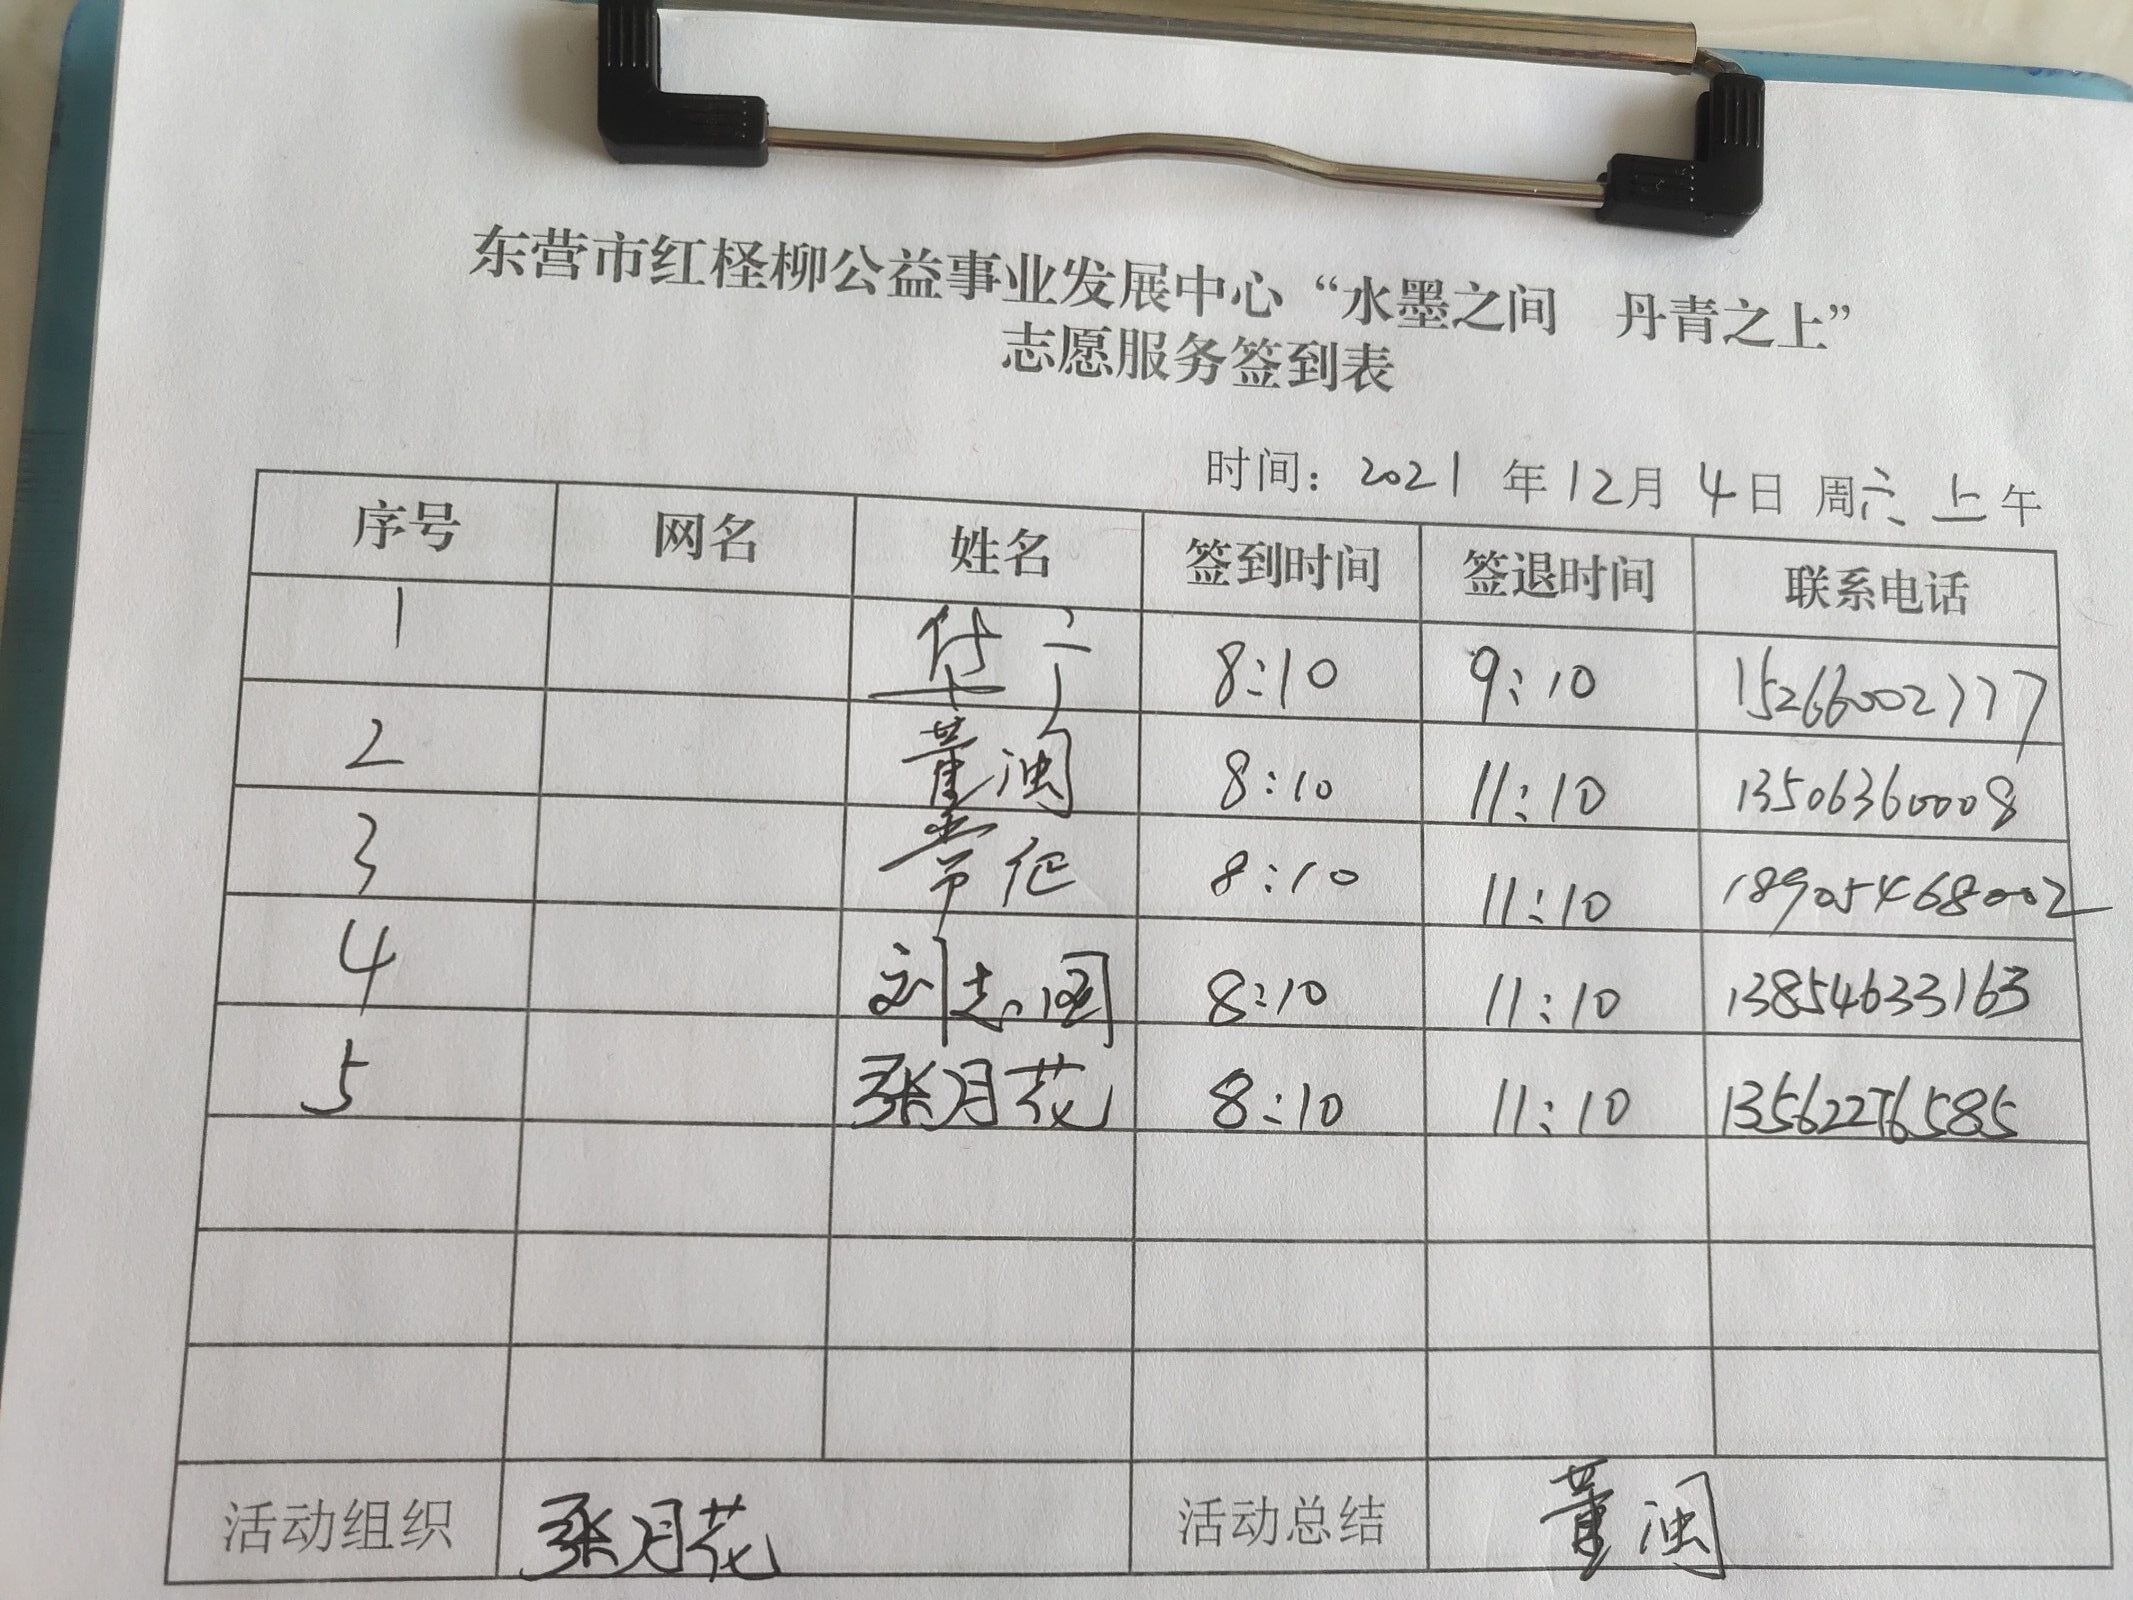 东营市红柽柳公益事业发展中心“水墨之间　丹青之上”
志愿服务签到表
时间：2021 年 12月 4日 周六 上午
序号 网名 姓名 签到时间 签退时间 联系电话
1 8:10 9:10 15266002777
2 董闽 8:10 11:10 13506360008
3 8:10 11:10 18905468002
4 刘志国 8:10 11:10 13854633163
5 张月花 8:10 11:10 13562276585
活动组织 张月花 活动总结 董闽